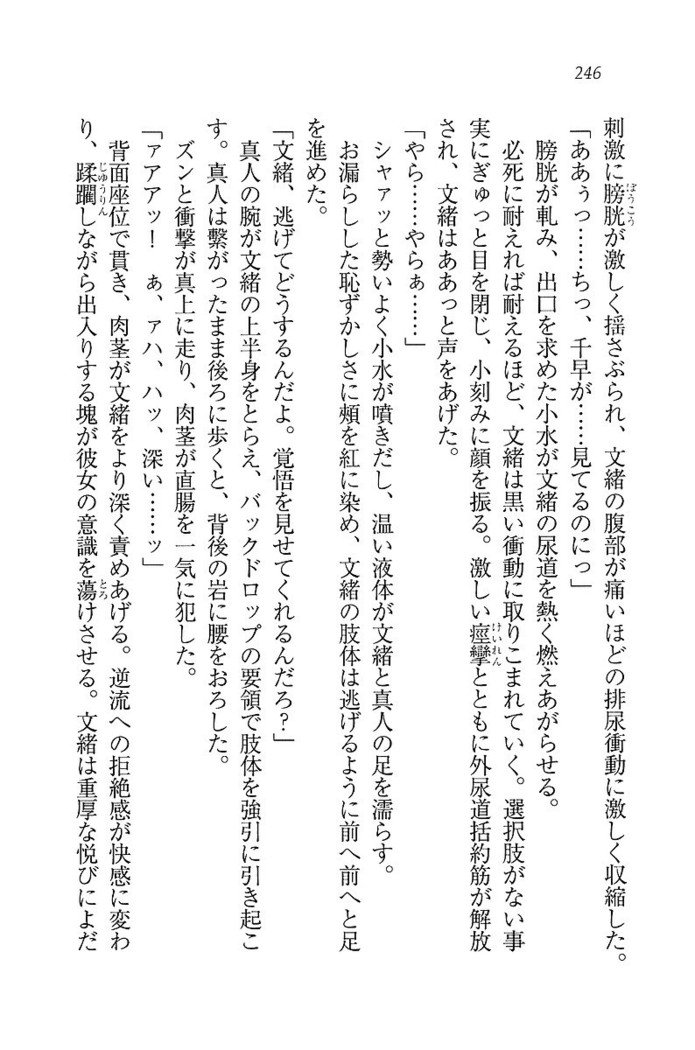 246
刺激に膀胱が激しく揺さぶられ、文緒の腹部が痛いほどの排尿衝動に激しく収縮した。
「ああぅっ……ちっ、千早が……見てるのにっ」
膀胱が軋み、出口を求めた小水が文緒の尿道を熱く燃えあがらせる。
必死に耐えれば耐えるほど、文緒は黒い衝動に取りこまれていく。選択肢がない事
実にぎゅっと目を閉じ、小刻みに顔を振る。激しい痙攣とともに外尿道括約筋が解放
され、文緒はああっと声をあげた。
「やら……やらぁ……」
シャァッと勢いよく小水が噴きだし、温い液体が文緒と真人の足を濡らす。
お漏らしした恥ずかしさに頰を紅に染め、文緒の肢体は逃げるように前へ前へと足
を進めた。
「文緒、逃げてどうするんだよ。覚悟を見せてくれるんだろ?」
真人の腕が文緒の上半身をとらえ、バックドロップの要領で肢体を強引に引き起こ
す。真人は繋がったまま後ろに歩くと、背後の岩に腰をおろした。
ズンと衝撃が真上に走り、肉茎が直腸を一気に犯した。
「ァアアッ！　ぁ、ァハ、ハッ、深い……ッ」
背面座位で貫き、肉茎が文緒をより深く責めあげる。逆流への拒絶感が快感に変わ
り、蹂躙しながら出入りする塊が彼女の意識を蕩けさせる。文緒は重厚な悦びによだ
ぼうこう
けいれん
じゅうりん
とろ